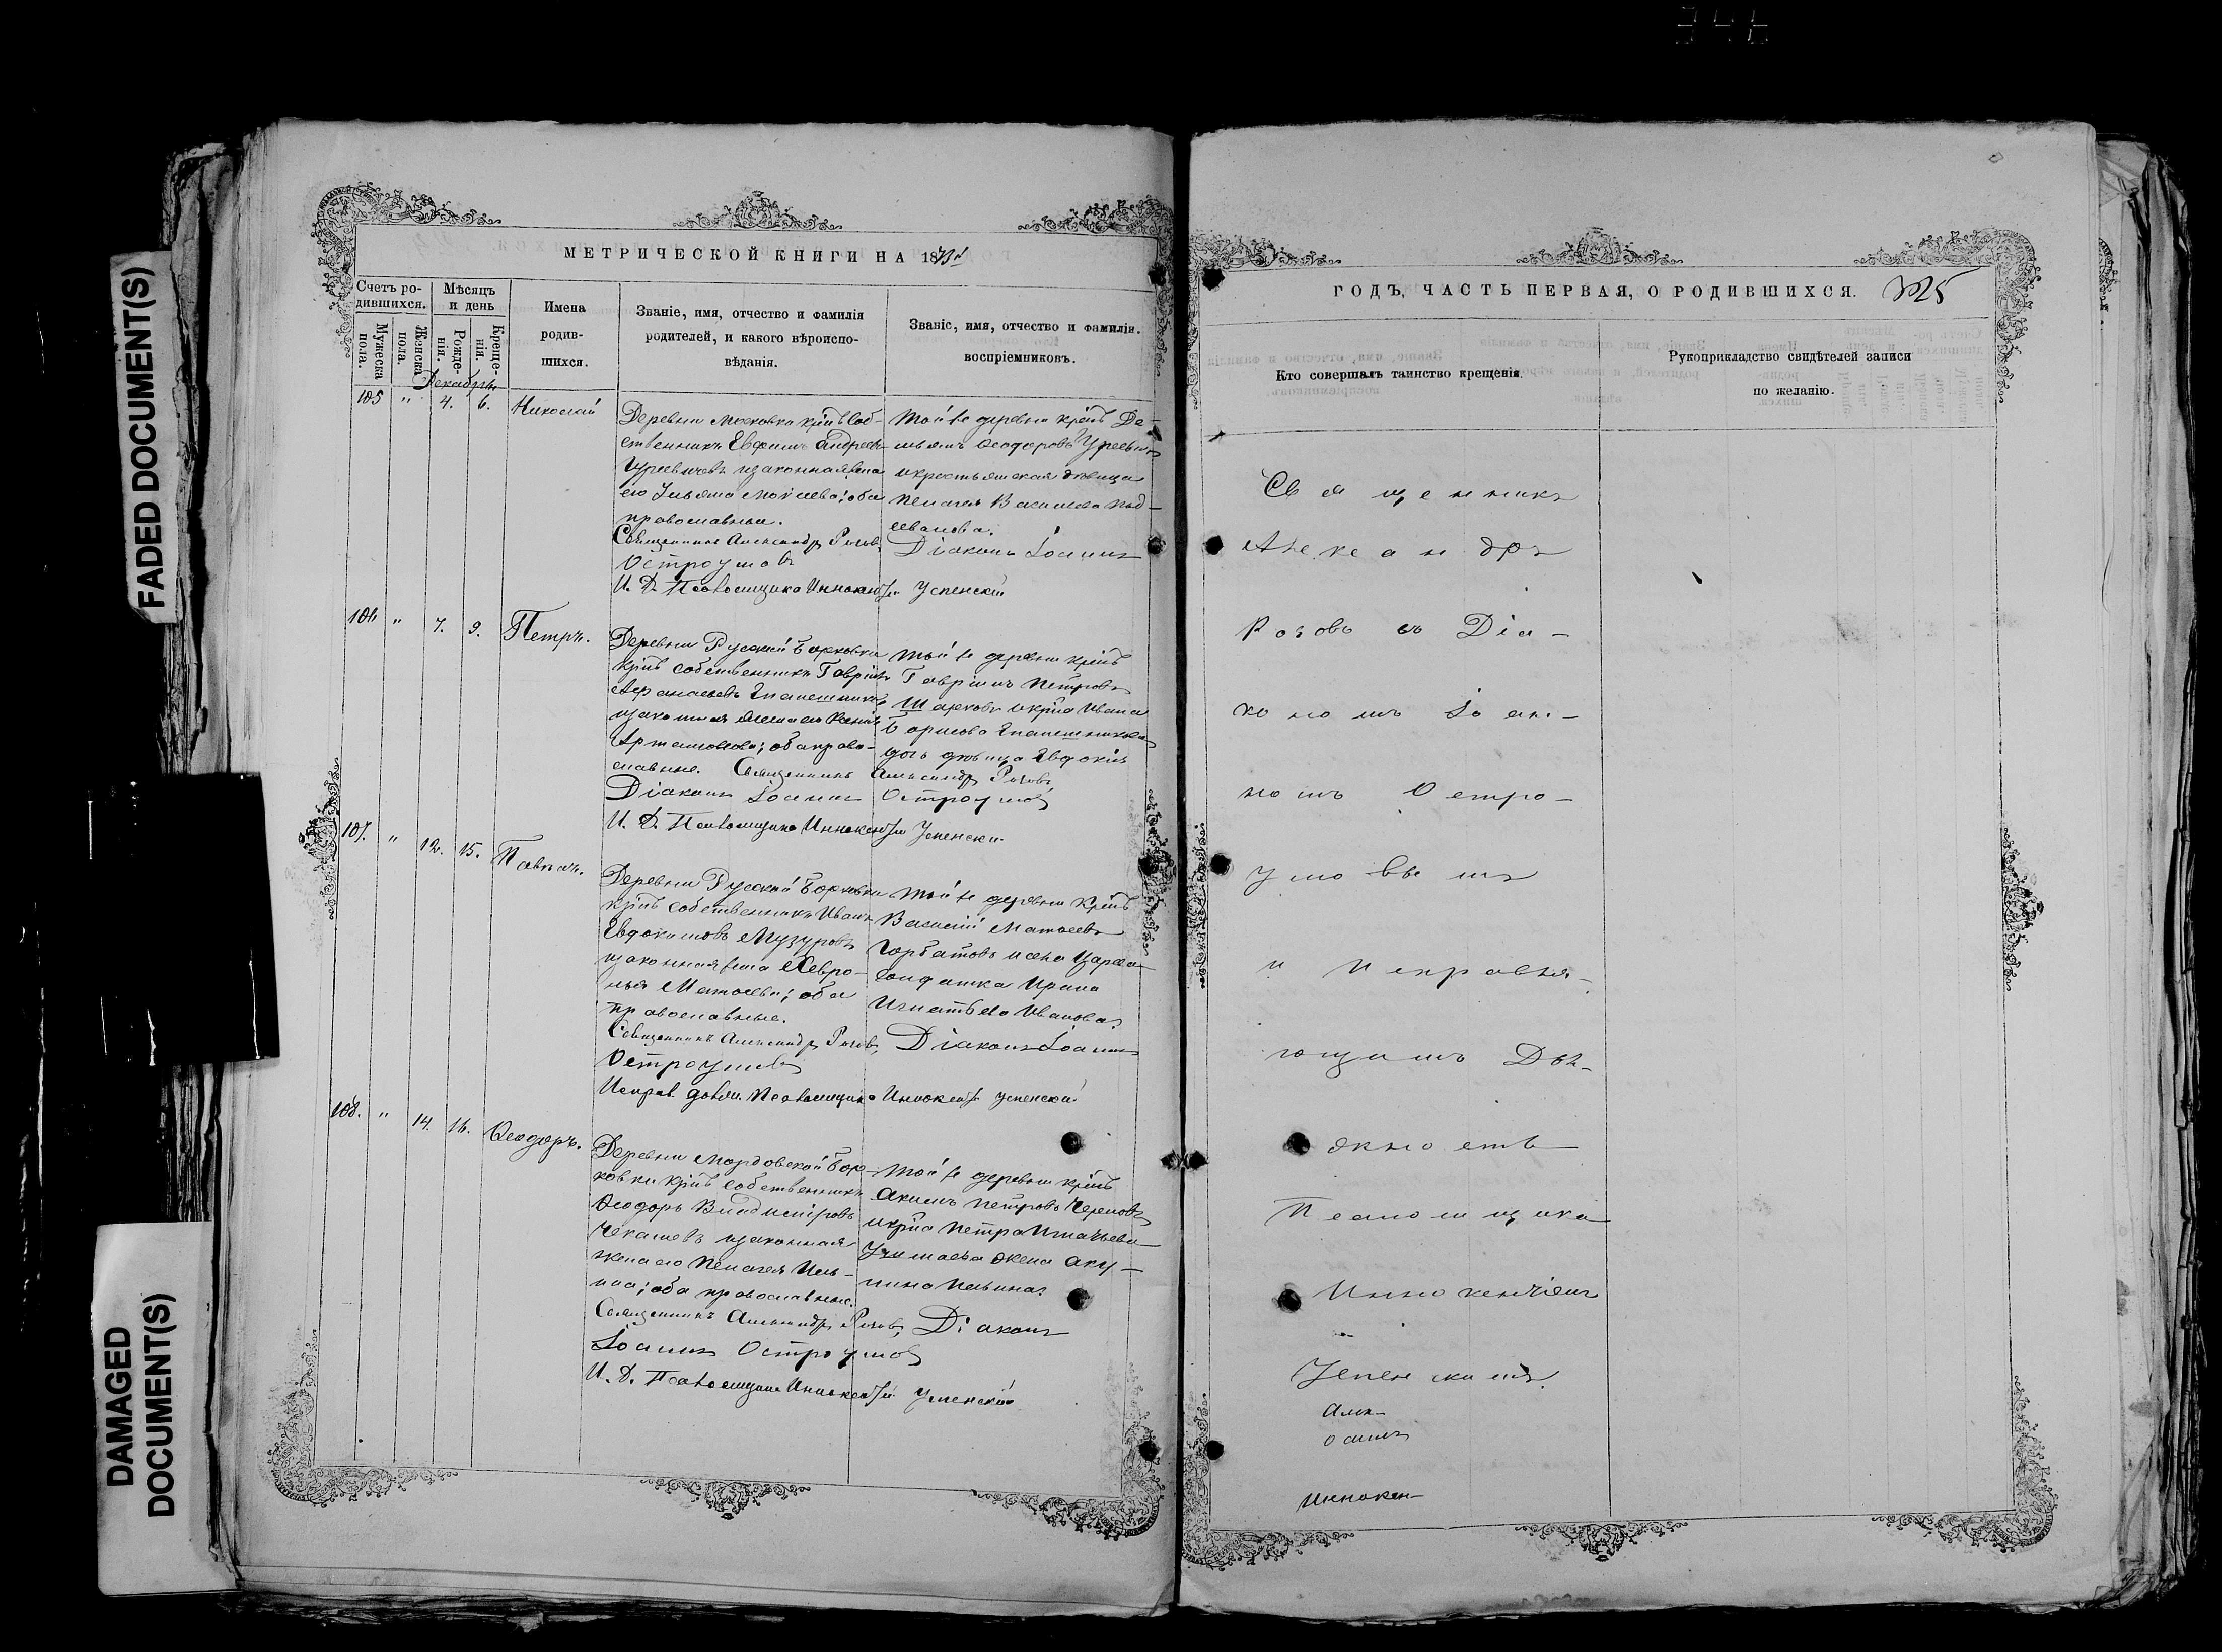 FADED DOCUMENT(S)
DAMAGED
DOCUMENT(S)
МЕТРИЧЕСКОЙ КНИГИ НА 1873й
Счетъ ро-
дившихся.
Мужеска
пола.
Женска
пола.
Мѣсяцъ
и день
Рожде-
нія.
Креще-
нія.
Имена
родив-
шихся.
Званіе, имя, отчество и фамилія
родителей, и какого вѣроиспо-
вѣданія.
Званіе, имя, отчество и фамилія.
воспріемниковъ.
Декабрь
105 " 4. 6. Николай
Деревни Московки крнъ соб-
ственникъ Евфимъ Андреевъ
изаконная жена
его Ульяна Моисеева; оба
православные.
Священникъ Александръ Розовъ
Остроумовъ
И. Д. Псаломщика Иннокентій Успенскій
Той же деревни крнъ Де-
мьянъ Ѳеодоровъ
икрестьянская дѣвица
Пелагея Василева
Діаконъ Іоаннъ
106 " 7. 9. Петръ.
Деревни Русской Борковки
крнъ собственникъ Гавріилъ
Аѳанасьевъ
изаконная жена его
Артамонова; оба право-
славные. Священникъ Александръ Розовъ
Діаконъ Іоаннъ Остроумовъ
И. Д. Псаломщика Иннокентій Успенскій
Той же деревни крнъ
Гавріилъ Петровъ
икрна Ивана
Борисова
дочь дѣвица Евдокія
107. " 12. 15. Павелъ.
Деревни Русской Борковки
крнъ собственникъ Иванъ
Евдокимовъ Музуровъ
изаконная жена Хевро-
нья Матвеева; оба
православные.
Священникъ Александръ Розовъ,
Остроумовъ
Исправ. долж. Псаломщика Иннокентій Успенскій
Той же деревни крнъ
Василій Матвеевъ
Горбатовъ
солдатка Ирина
Игнатьева Иванова.
Діаконъ Іоаннъ
108. " 14. 16. Ѳеодоръ.
Деревни Мордовской Бор-
ковки крнъ собственникъ
Ѳеодоръ
Чекашевъ изаконная
жена его Пелагея Иль-
ина; оба православные.
Священникъ Александръ Розовъ, Діаконъ
Іоаннъ Остроумовъ
И. Д. Псаломщика Иннокентій Успенскій
Той же деревни крнъ
Акимъ Петровъ
икрна Петра
жена Аку-
лина Ильина.
ГОДЪ, ЧАСТЬ ПЕРВАЯ, О РОДИВШИХСЯ. 325
Кто совершалъ таинство крещенія.
Рукоприкладство свидѣтелей записи
по желанію.
Священникъ
Александръ
Розовъ съ Діа-
кономъ Іоан-
номъ Остро-
умовымъ
и исправля-
ющимъ Дол-
жность
Псаломщика
Иннокентіемъ
Успенскимъ.
Алек-
Иннокен-